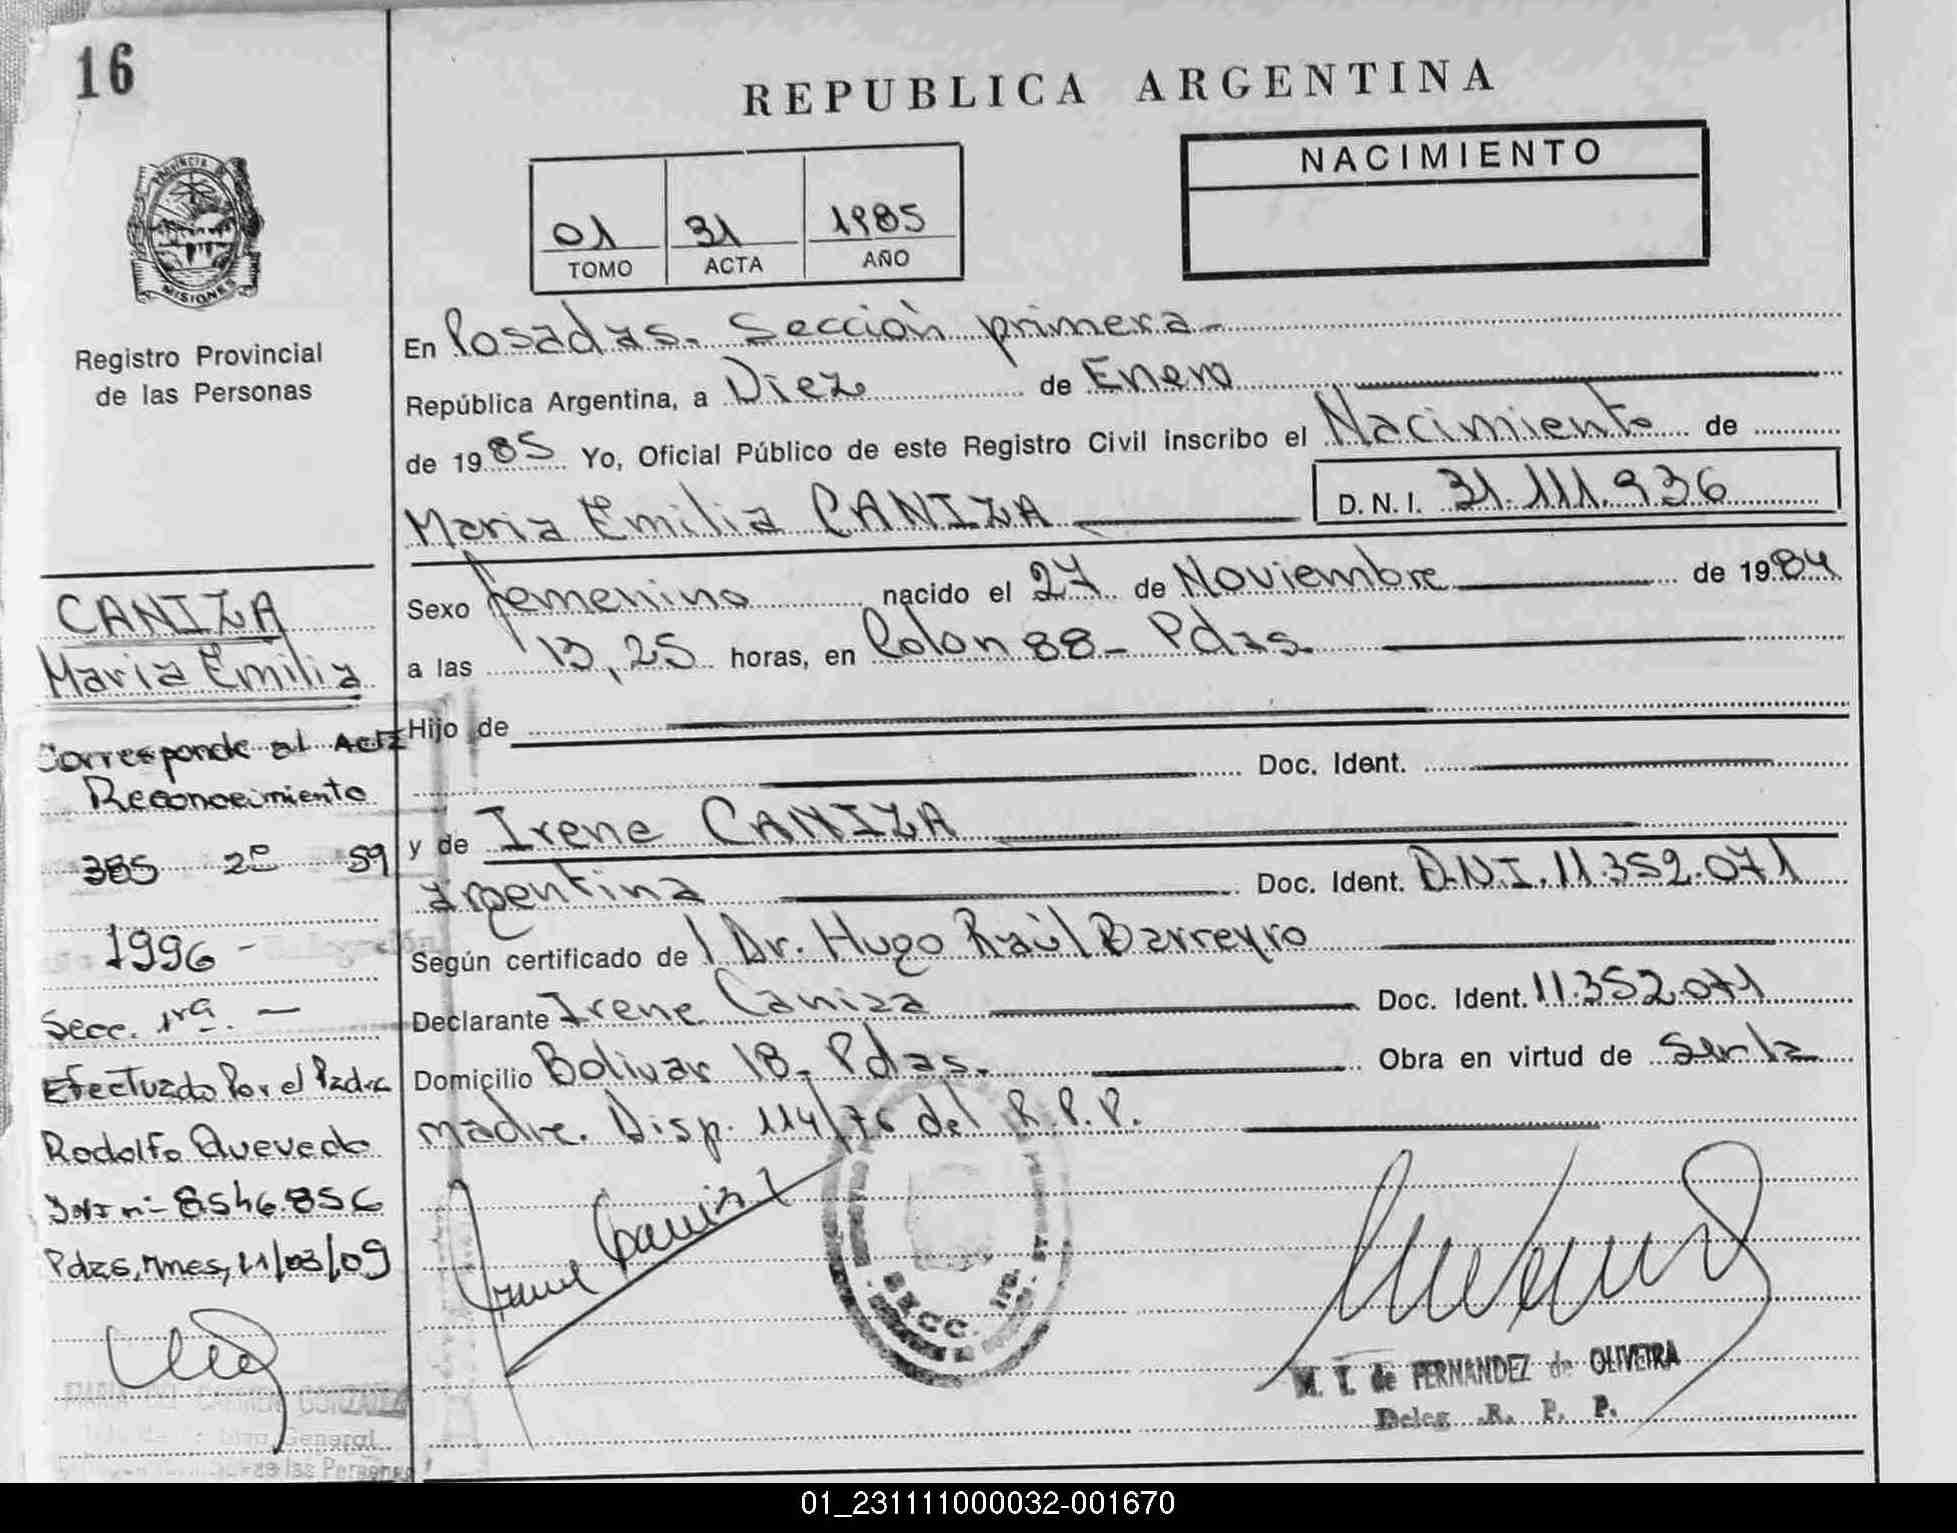 16
REPUBLICA ARGENTINA
NACIMIENTO
01 31 1985
TOMO ACTA AÑO
PROVINCIA DE
MISIONES
Registro Provincial
de las Personas
En Posadas. Sección primera
República Argentina, a Diez de Enero
de 1985 Yo, Oficial Público de este Registro Civil inscribo el Nacimiento de
Maria Emilia CANIZA D. N. I. 31.111.936
Sexo femenino nacido el 27 de Noviembre de 1984
a las 13,25 horas, en Colon 88- Pdas.
Hijo de
Doc. Ident.
y de Irene CANIZA
argentina Doc. Ident. D.N.I. 11.352.071
Según certificado de Dr. Hugo Raúl Barreyro
Declarante Irene Caniza Doc. Ident. 11.352.071
Domicilio Bolivar 18- Pdas. Obra en virtud de ser la
madre. Disp. 114/76 del R.P.P.
CANIZA
Maria Emilia
Corresponde al Acta
Reconocimiento
385 2º 59
1996 -
Secc. 1ra. -
Efectuado Por el Padre
Rodolfo Quevedo
DNI nº 8.546.856
Pdas, Mnes, 11/03/09
Irene Caniza
SECC. 1ra.
M. T. de FERNANDEZ de OLIVEIRA
Deleg. R. P. P.
MARIA DEL CARMEN GONZALEZ
General
de las Personas
01_231111000032-001670